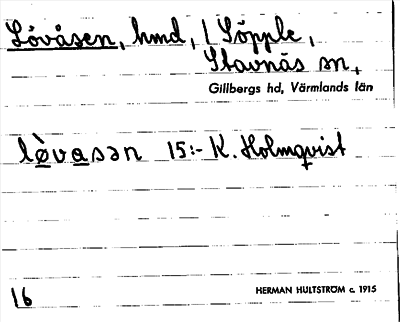 Lövåsen, hmd, / Säpple,
Stavnäs sn,
Gillbergs hd, Värmlands län
lø̀vasən 15:- K. Holmqvist
16
HERMAN HULTSTRÖM c. 1915